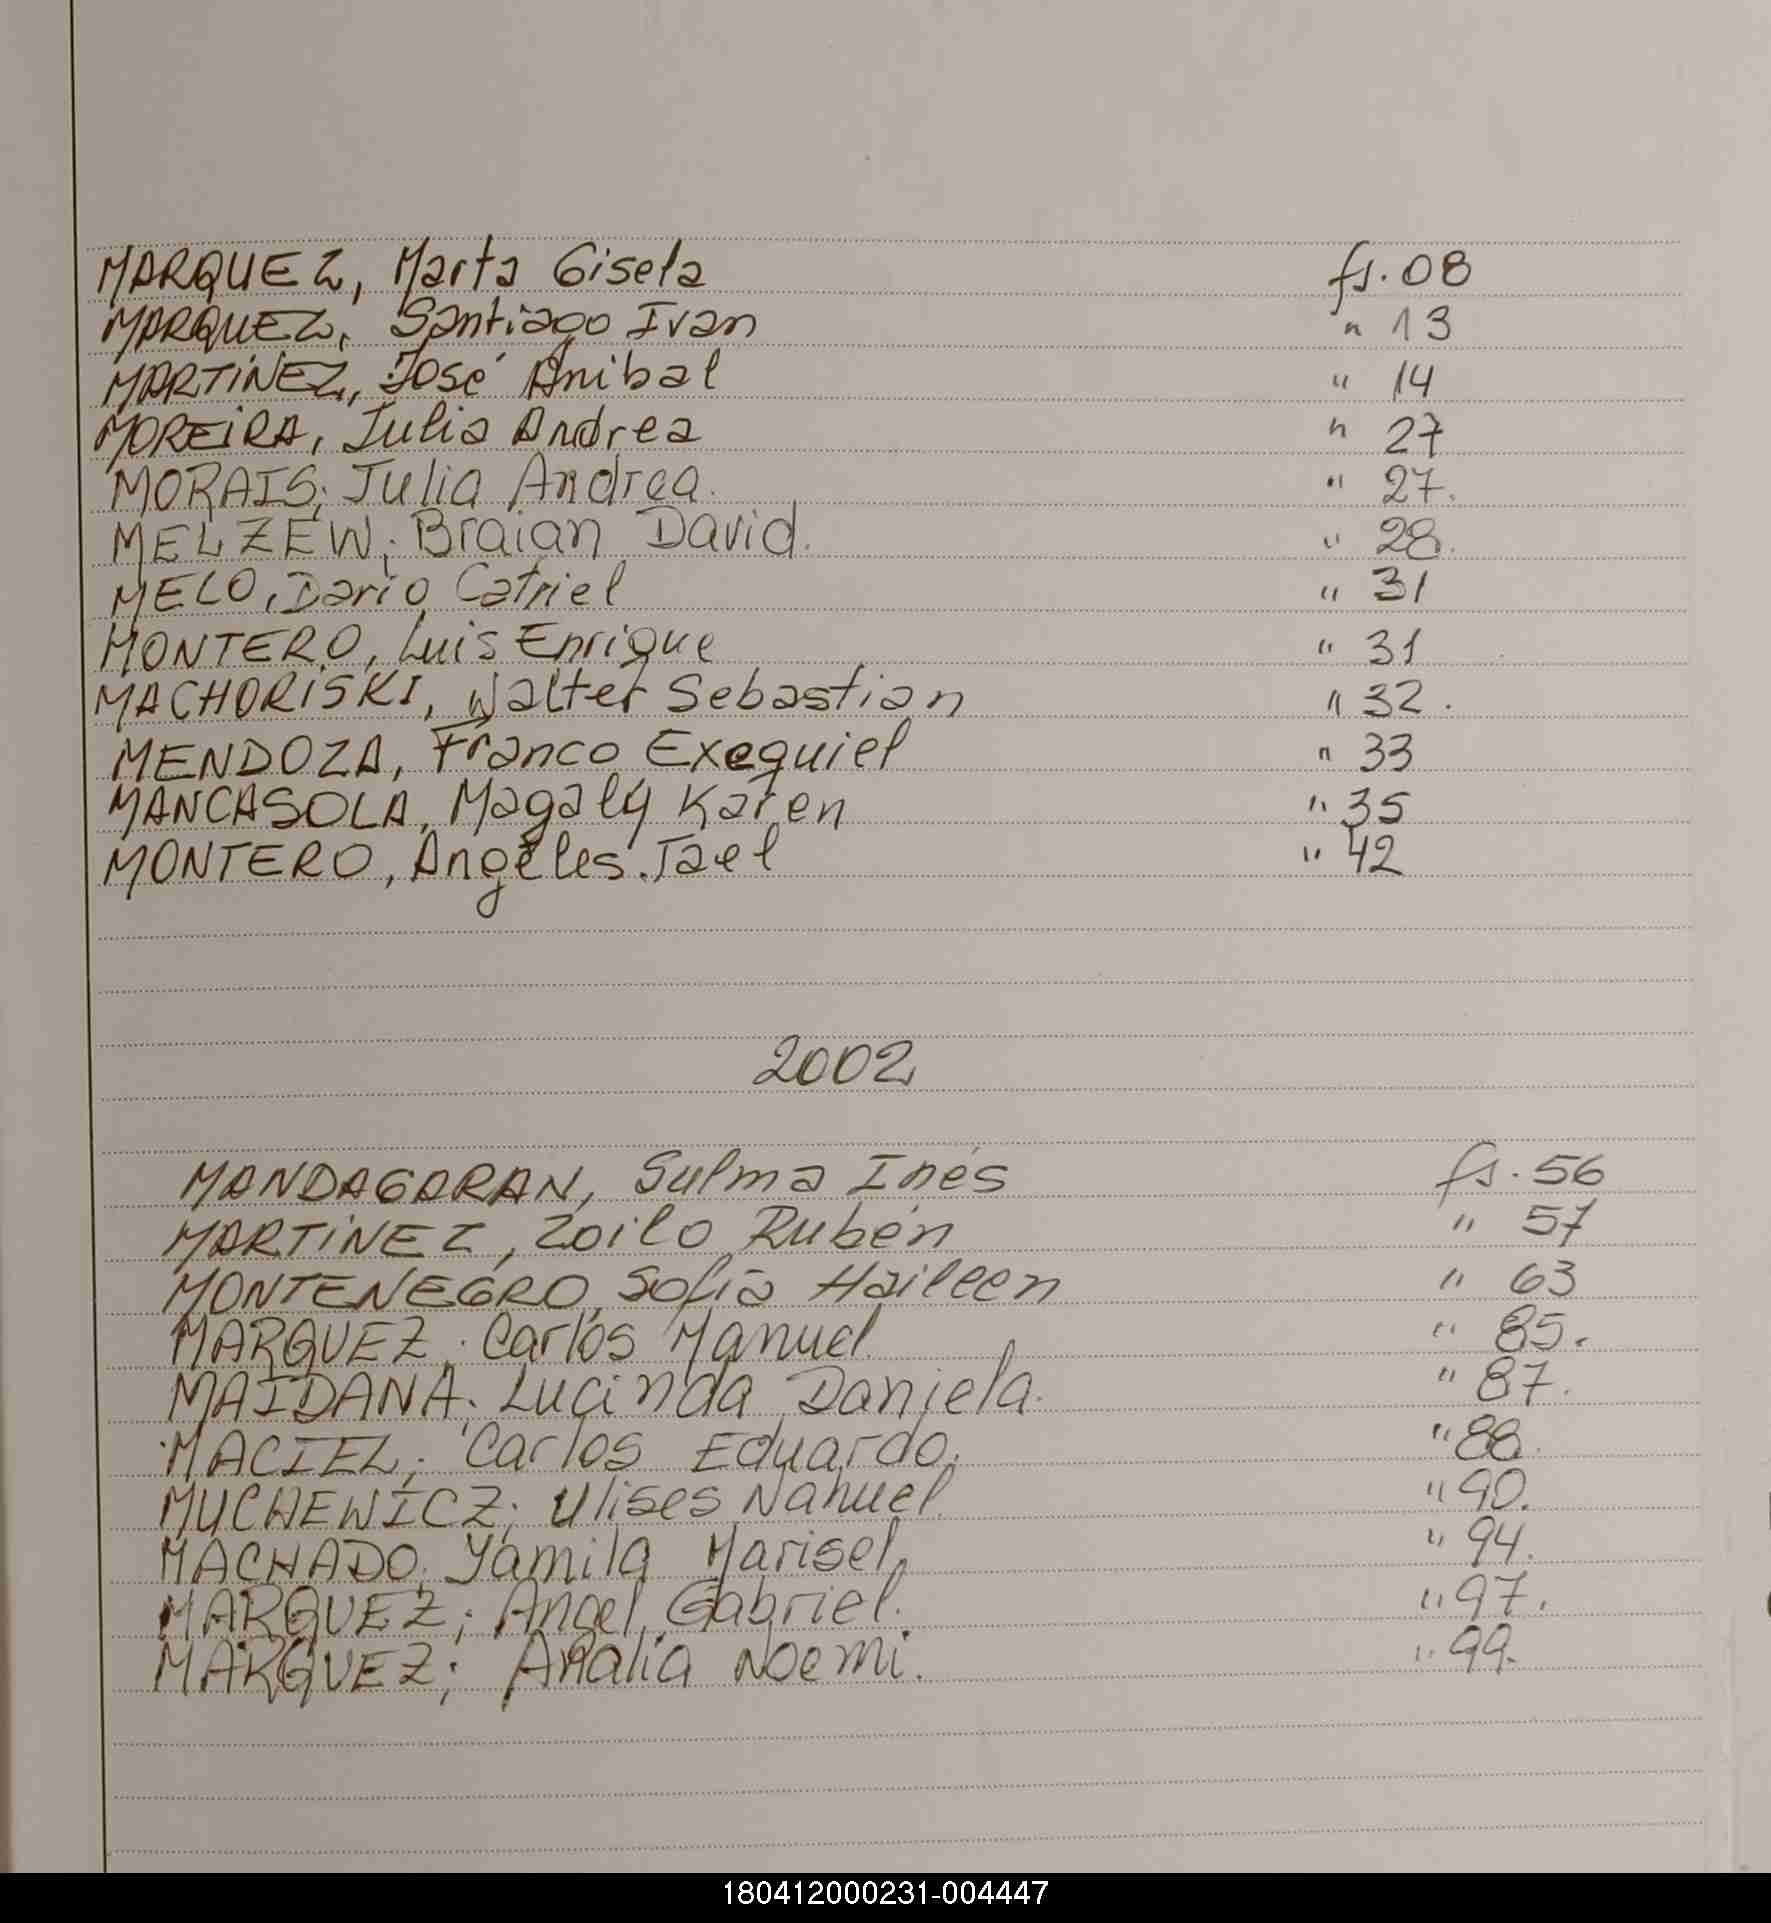 MARQUEZ, Marta Gisela fs. 08
MARQUEZ, Santiago Ivan " 13
MARTINEZ, José Anibal " 14
MOREIRA, Julia Andrea " 27
MORAIS; Julia Andrea. " 27.
MELZEW; Braian David. " 28.
MELO, Dario Catriel " 31
MONTERO, Luis Enrique " 31
MACHORISKI, Walter Sebastian " 32.
MENDOZA, Franco Exequiel " 33
MANCASOLA, Magaly Karen " 35
MONTERO, Angeles Jael " 42
2002
MANDAGARAN, Sulma Inés fs. 56
MARTINEZ, Zoilo Rubén " 57
MONTENEGRO, Sofia Haileen " 63
MARQUEZ; Carlos Manuel. " 85.
MAIDANA; Lucinda Daniela. " 87.
MACIEL; Carlos Eduardo. " 88.
MUCHEWICZ; Ulises Nahuel. " 90.
MACHADO; Yamila Marisel. " 94.
MARQUEZ; Angel Gabriel. " 97.
MARQUEZ; Analia Noemi. " 99.
180412000231-004447